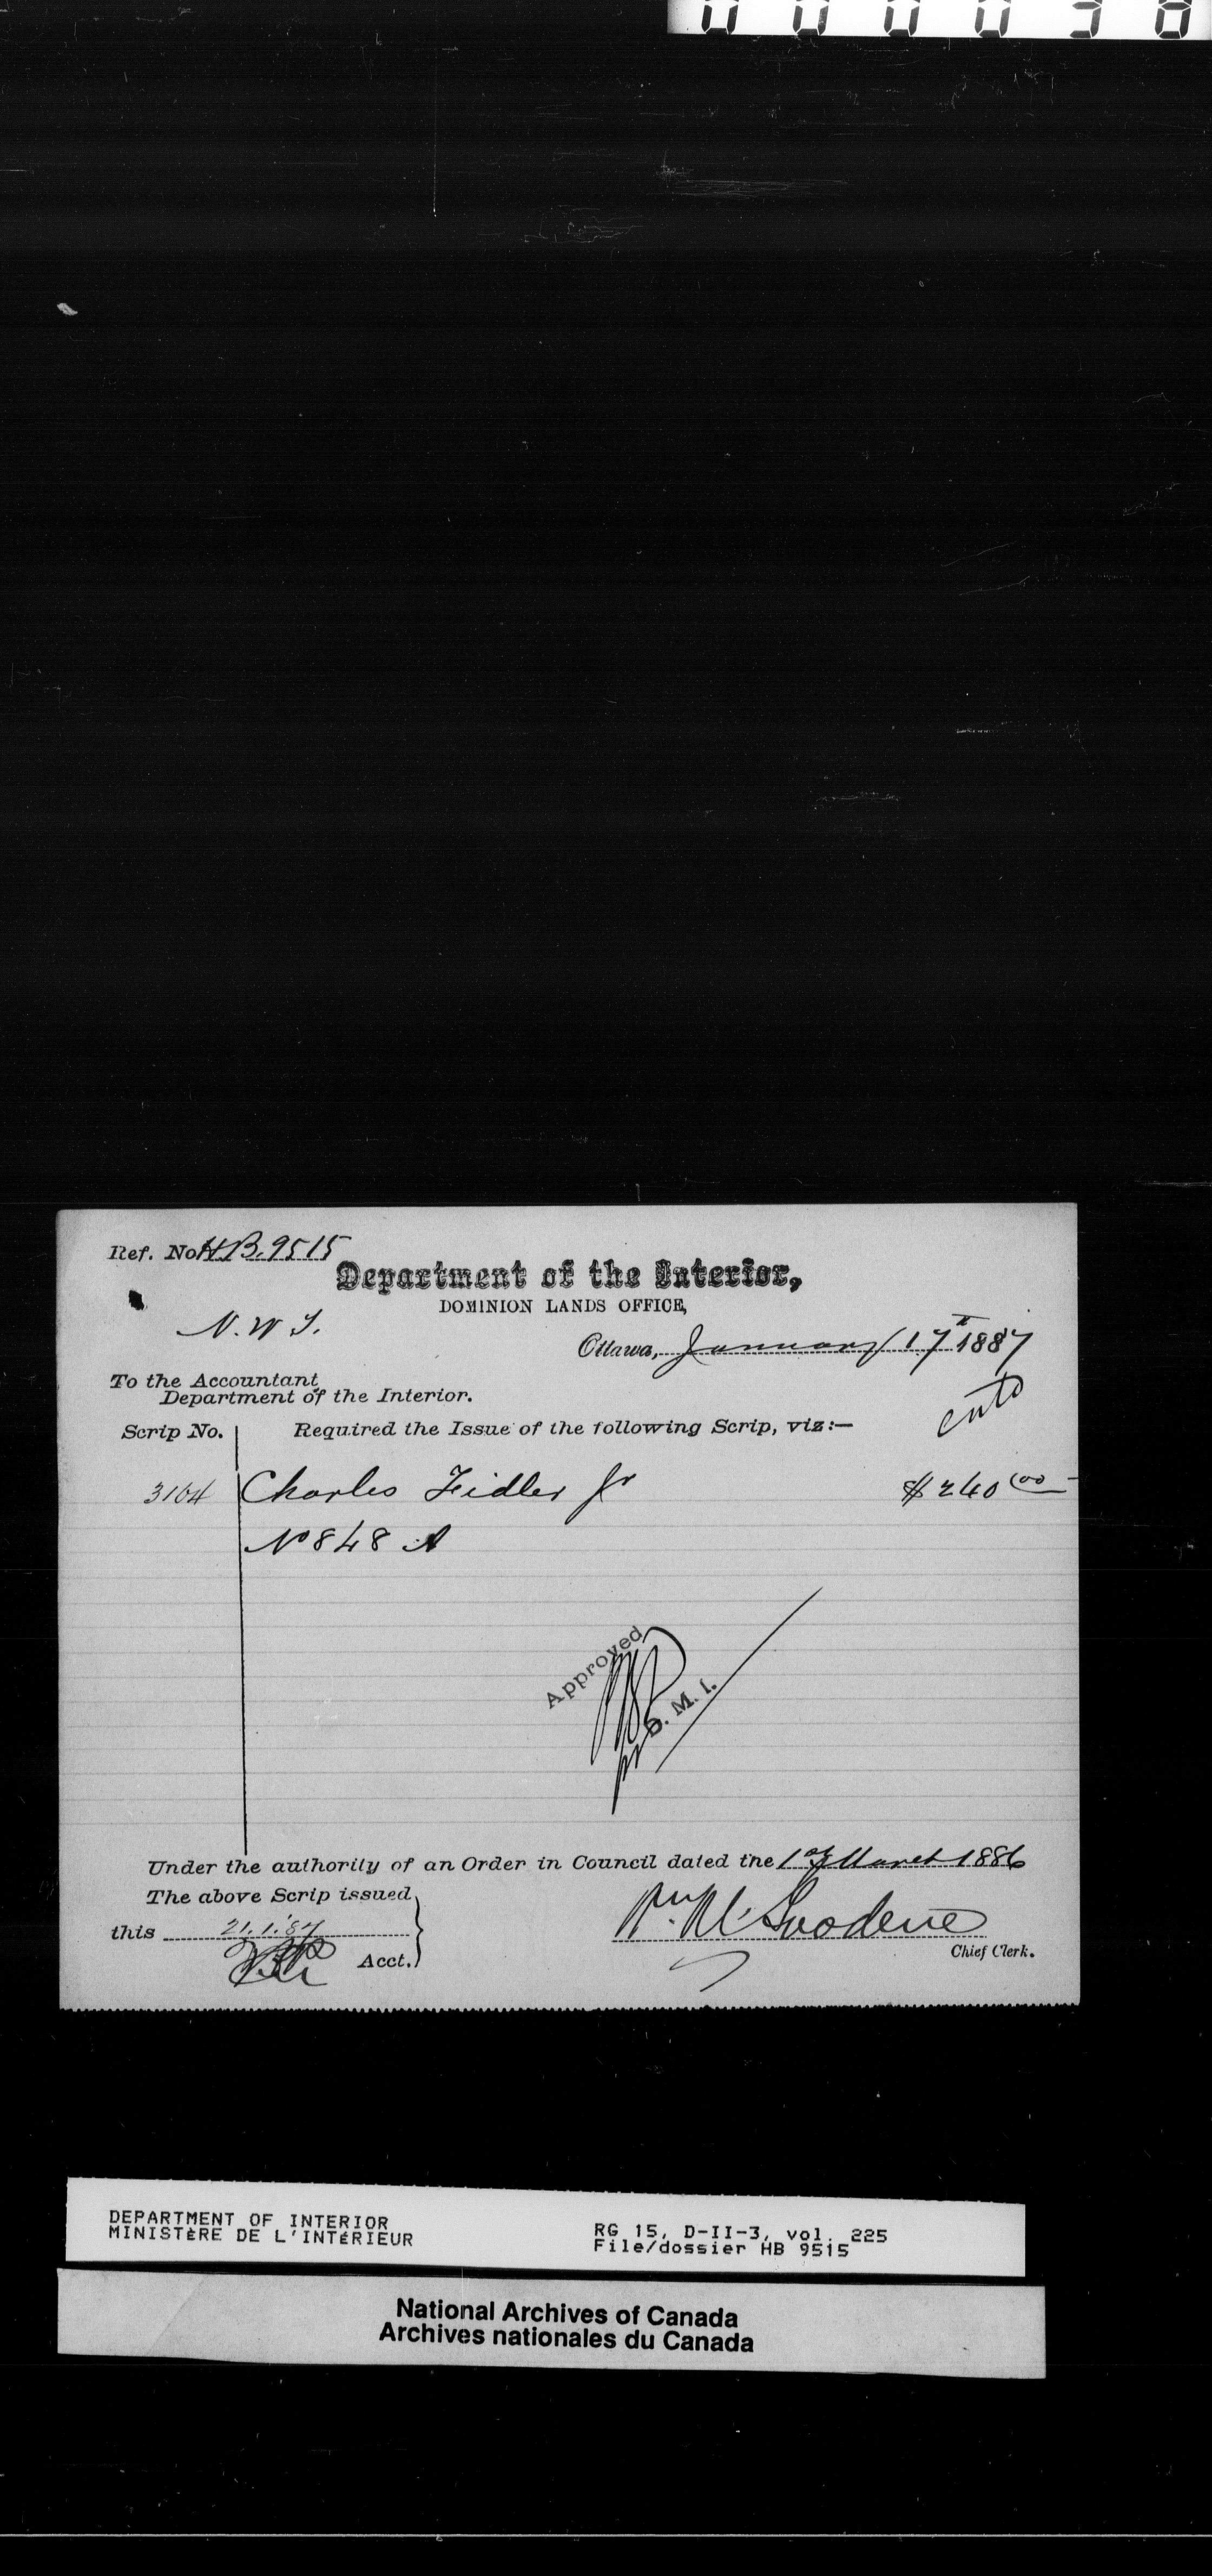 000038
Ref. No HB. 9515
Department of the Interior,
DOMINION LANDS OFFICE,
N. W. T.
Ottawa, January 17th 1887
To the Accountant
Department of the Interior.
Scrip No. Required the Issue of the following Scrip, viz:—
3104 Charles Fidler Jr $240 00
No 848 A
Approved
D. M. I.
Under the authority of an Order in Council dated the 1st March 1886
The above Scrip issued
this 21.1.87
Acct.
Chief Clerk.
DEPARTMENT OF INTERIOR
MINISTÈRE DE L'INTÉRIEUR
RG 15, D-II-3, vol. 225
File/dossier HB 9515
National Archives of Canada
Archives nationales du Canada